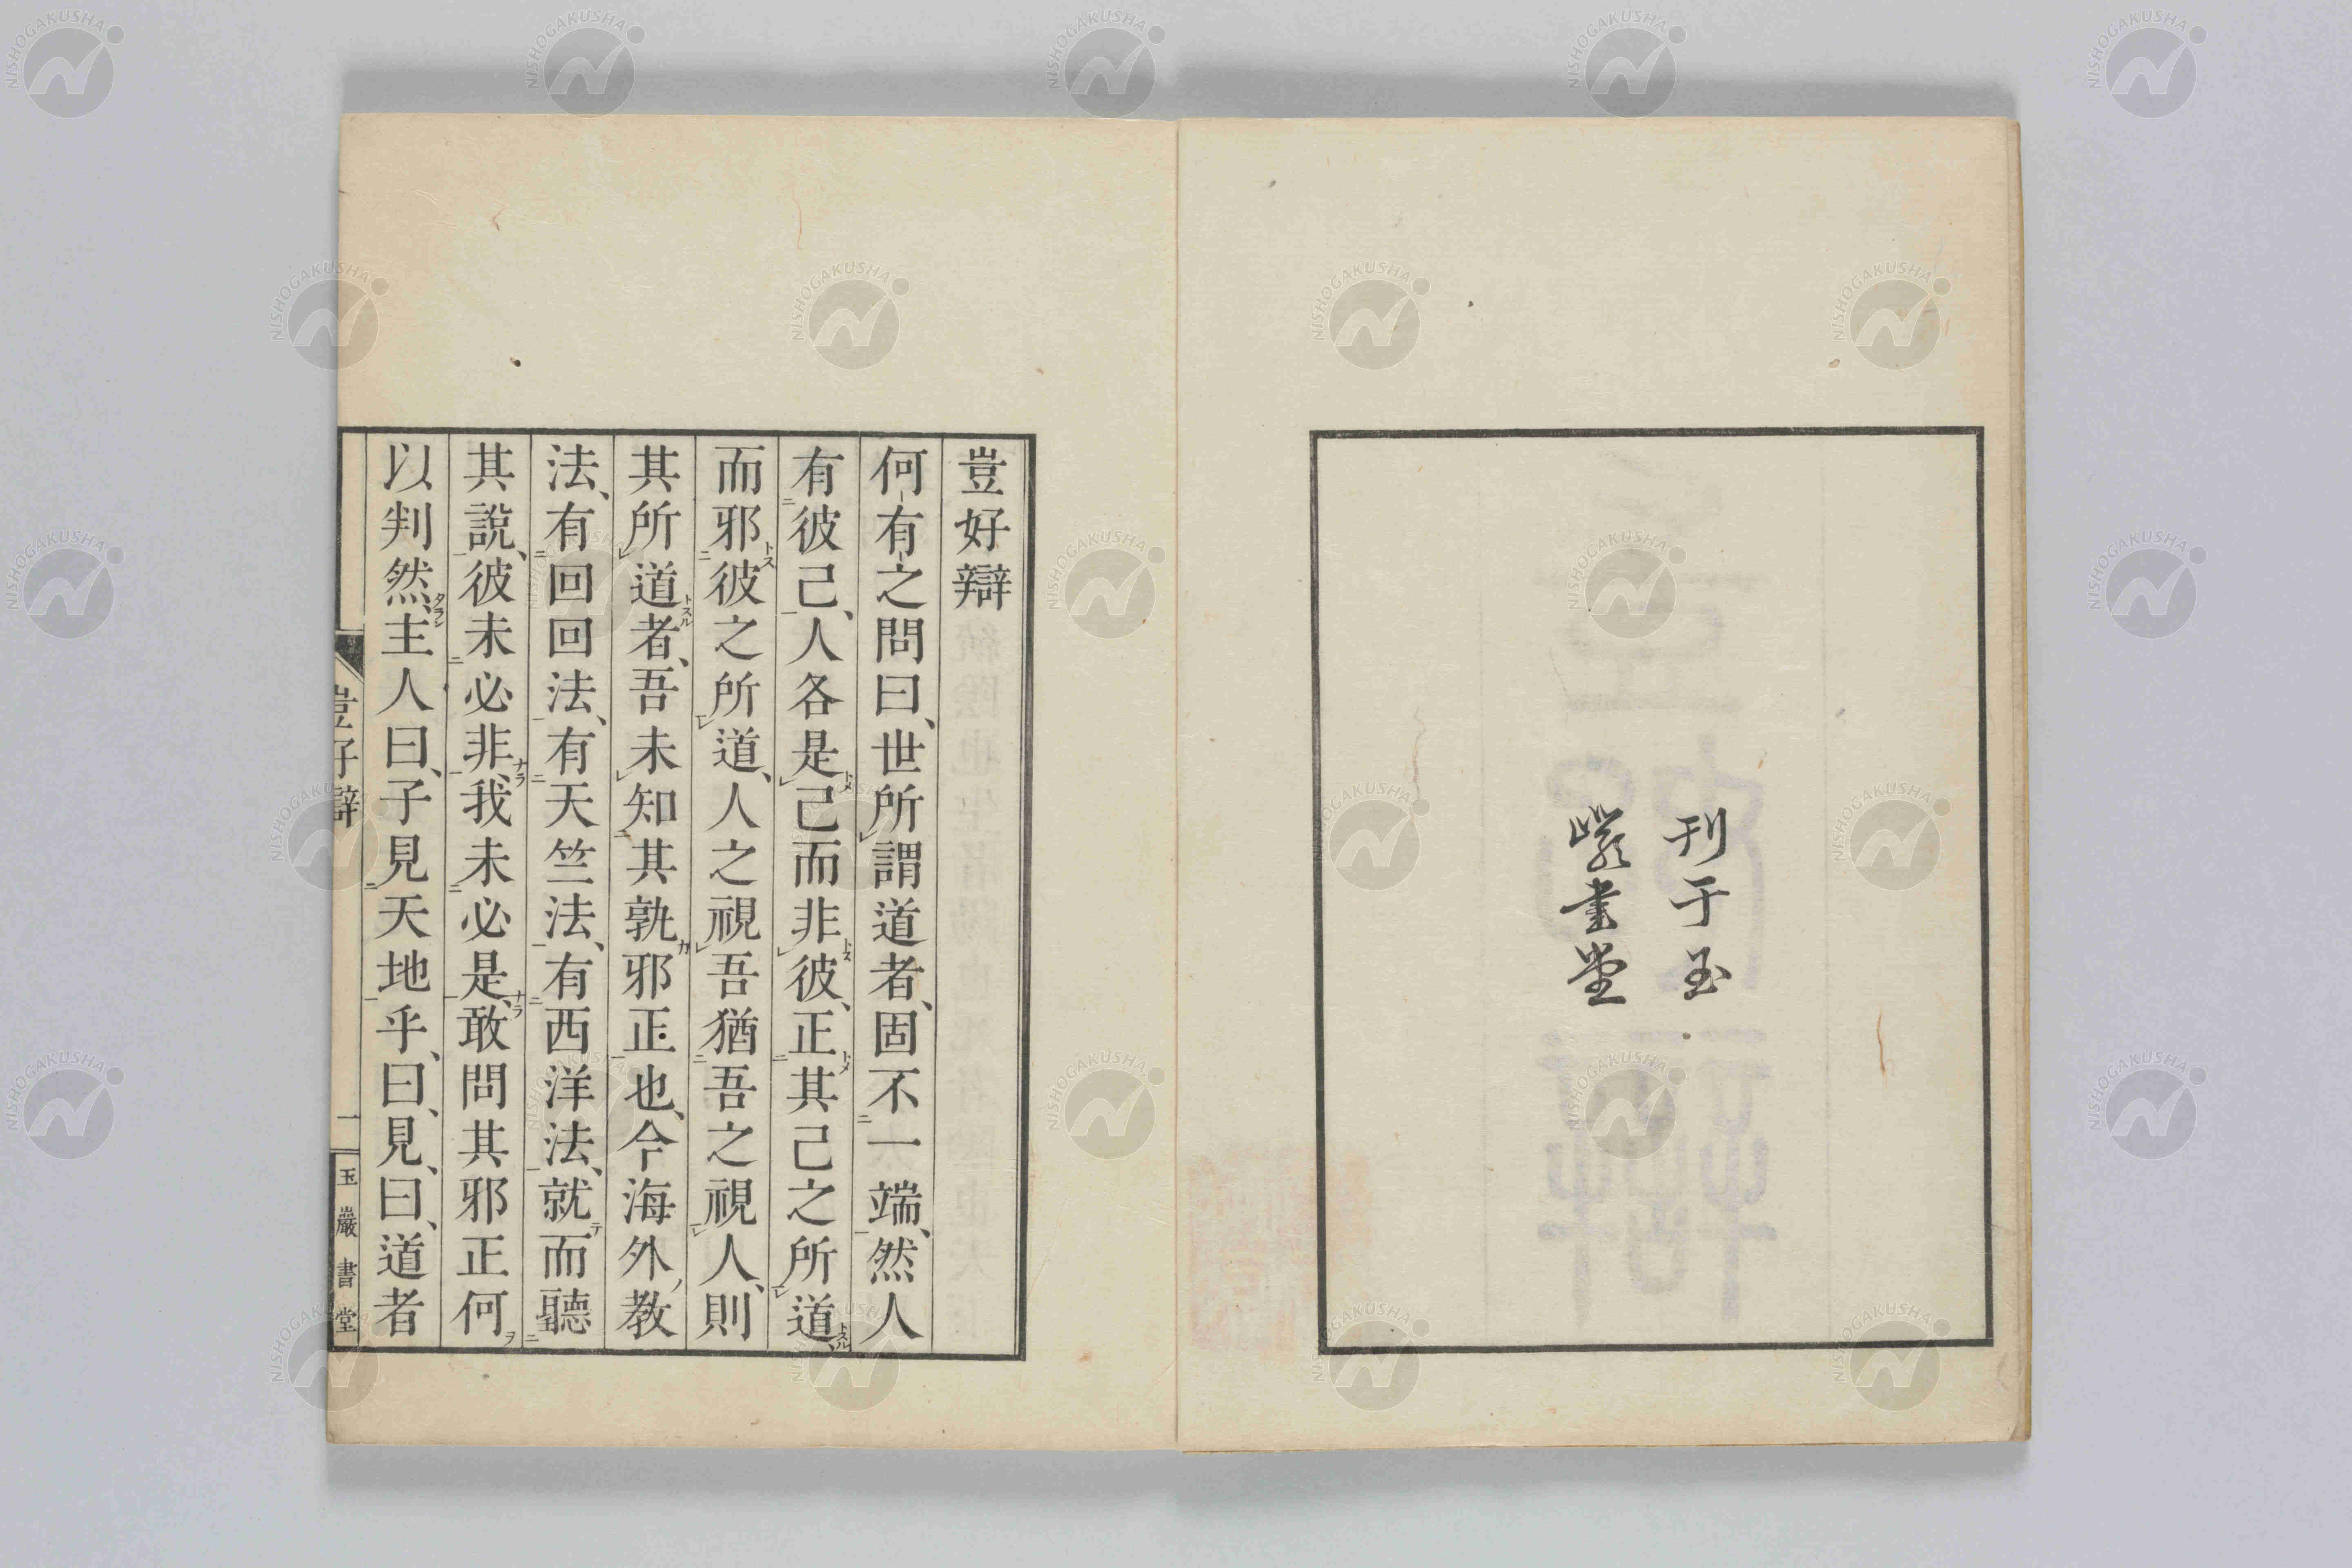 刊于玉
巖書堂
豈好辯
何有之問曰、世所謂道者、固不一端、然人
有彼己、人各是己而非彼、正其己之所道、
而邪彼之所道、人之視吾猶吾之視人、則
其所道者、吾未知其孰邪正也、今海外教
法、有回回法、有天竺法、有西洋法、就而聽
其說、彼未必非、我未必是、敢問其邪正何
以判然、主人曰、子見天地乎、曰、見、曰、道者
豈好辯
一
玉巖書堂